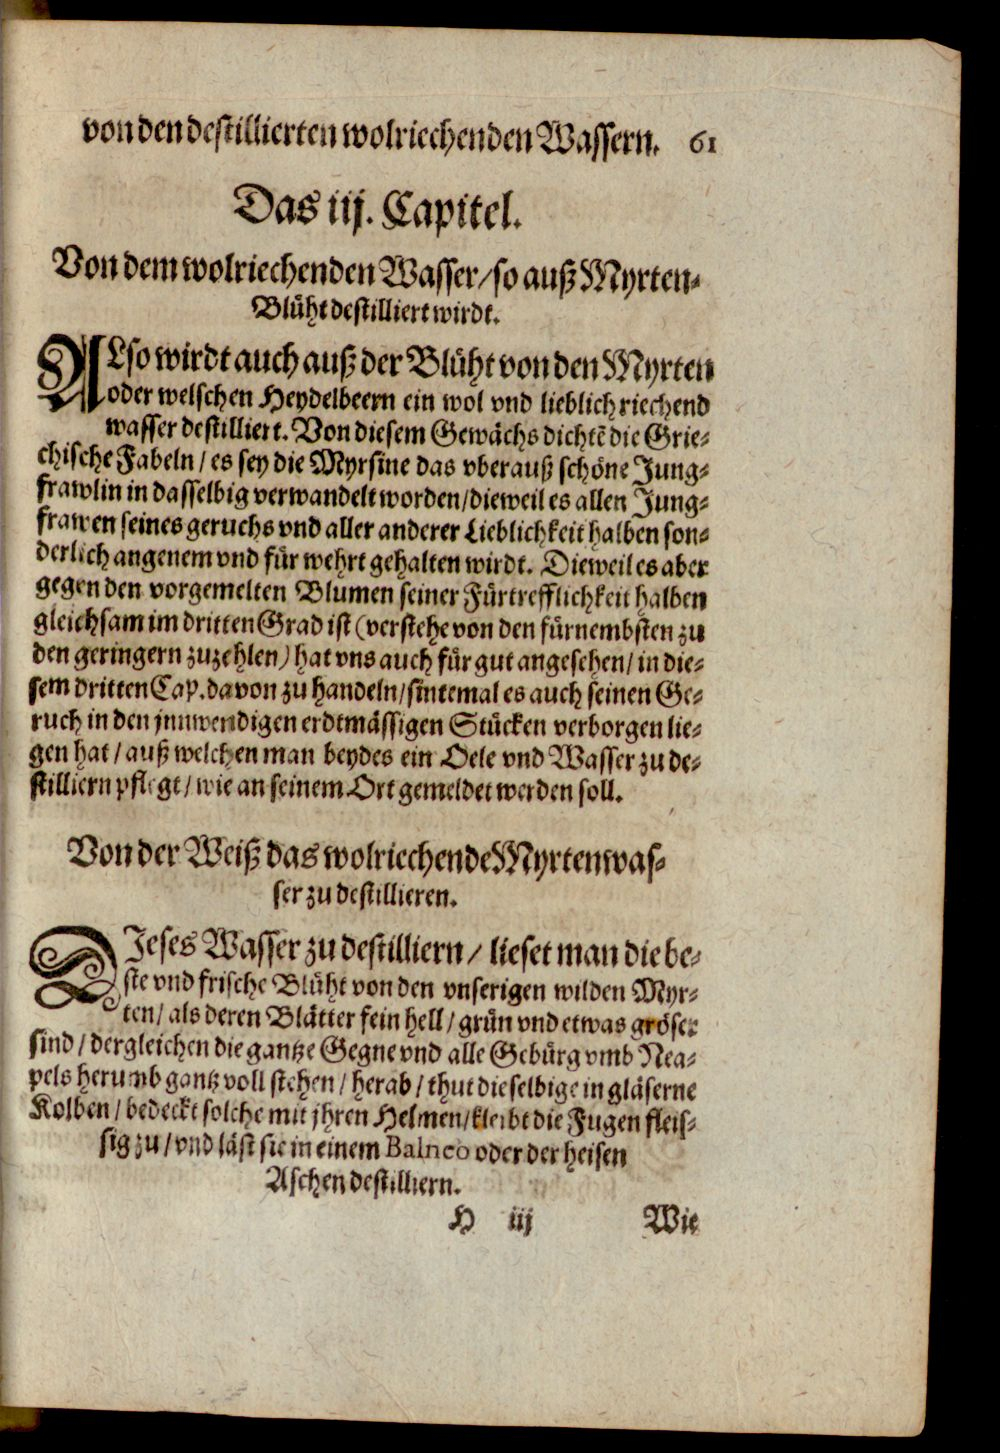 von den destillierten wolriechenden Wassern. 61
Das iij. Capitel.
Von dem wolriechenden Wasser/ so auß Myrten-
Blüht destilliert wirdt.
ALso wirdt auch auß der Blüht von den Myrten
oder welschen Heydelbeern ein wol vnd lieblich riechend
wasser destilliert. Von diesem Gewächs dichtẽ die Grie-
chische Fabeln / es sey die Myrsine das vberauß schöne Jung-
frawlin in dasselbig verwandelt worden/ dieweil es allen Jung-
frawen seines geruchs vnd aller anderer Lieblichkeit halben son-
derlich angenem vnd für wehrt gehalten wirdt. Dieweil es aber
gegen den vorgemelten Blumen seiner Fürtrefflichkeit halben
gleichsam im dritten Grad ist (verstehe von den fürnembsten zu
den geringern zuzehlen) hat vns auch für gut angesehen/ in die-
sem dritten Cap. davon zu handeln/ sintemal es auch seinen Ge-
ruch in den jnnwendigen erdtmässigen Stücken verborgen lie-
gen hat / auß welchen man beydes ein Oele vnd Wasser zu de-
stilliern pflegt / wie an seinem Ort gemeldet werden soll.
Von der Weiß das wolriechende Myrtenwas-
ser zu destillieren.
DJeses Wasser zu destilliern / lieset man die be-
ste vnd frische Blüht von den vnserigen wilden Myr-
ten/ als deren Blätter fein hell / grün vnd etwas gröser
sind / dergleichen die gantze Gegne vnd alle Gebürg vmb Nea-
pels herumb gantz voll stehen / herab / thut dieselbige in gläserne
Kolben / bedeckt solche mit jhren Helmen/ kleibt die Fugen fleis-
sig zu / vnd läst sie in einem Balneo oder der heisen
Aschen destilliern.
H iij Wie